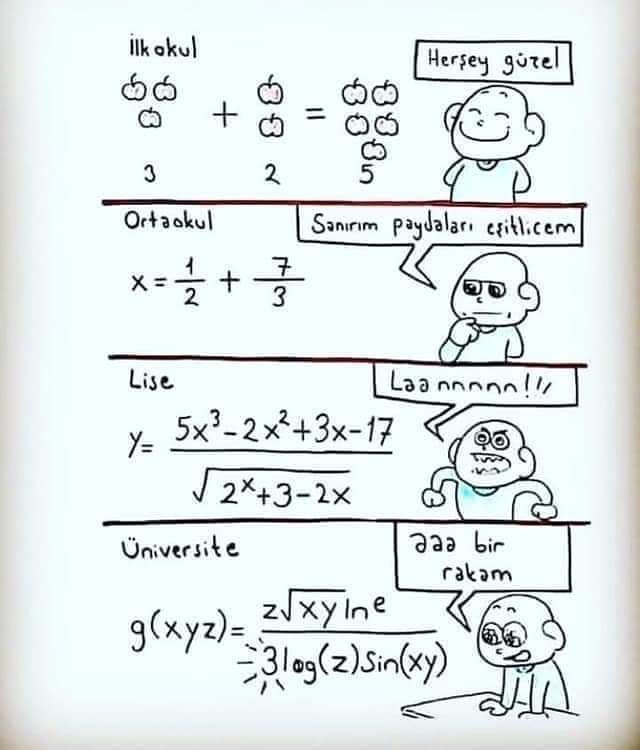 İlkokul
Herşey güzel
+ =
3 2 5
Ortaokul
Sanırım paydaları eşitlicem
x = 1/2 + 7/3
Lise
Laannnnn!!!
y= 5x³-2x²+3x-17
√2ˣ+3-2x
Üniversite
aaa bir
rakam
g(xyz)= z√xy lnᵉ
3log(z)Sin(xy)